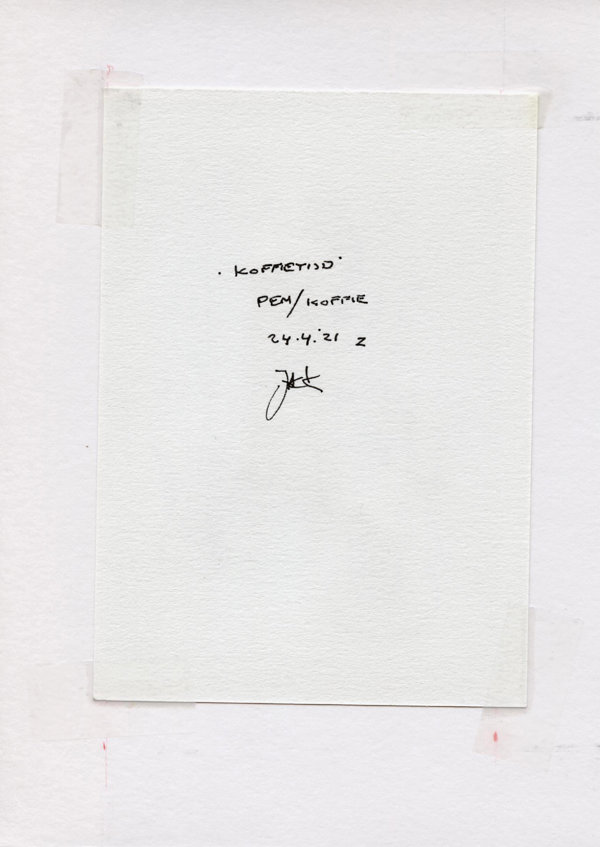 'KOFFIETIJD'
PEN/KOFFIE
24.4.'21 Z